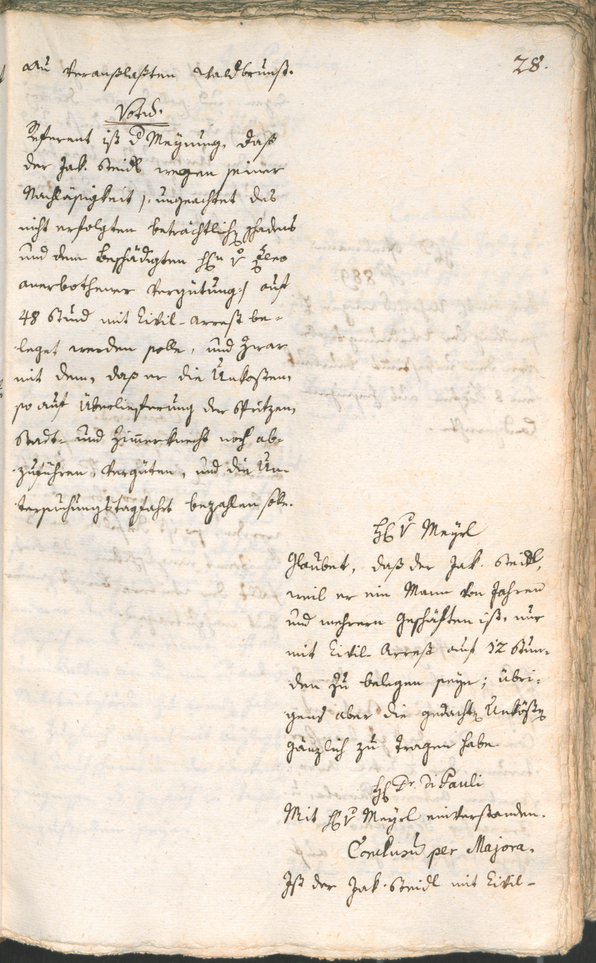 28.
an veranlaßten Waldbrunst.
Votū.
Referent ist d Meynung, daß
der Jak. Steidl wegen seiner
Nachläßigkeit /: ungeachtet des
nicht erfolgten beträchtlich Schadens
und dem Beschädigten H v
anerbothener Vergütung :/ auf
48 Stund mit Civil-Arrest be-
leget werden solle, und zwar
mit dem, daß er die Unkosten,
so auf Überlieferung der Spritzen,
Stadt- und Zimmerknecht noch ab-
zuführen, vergüten, und die Un-
tersuchungstagfahrt bezahlen solle.
H v Meyrl
Glaubet, daß der Jak. Steidl,
weil er ein Mann von Jahren
und mehrern Geschäften ist, nur
mit Civil-Arrest auf 12 Stun-
den zu belegen seye; übri-
gens aber die gedacht Unköst
gänzlich zu tragen habe
H Dr. di Pauli
Mit H v Meyrl einverstanden.
Conclusū per Majora.
Ist der Jak. Steidl mit Civil-